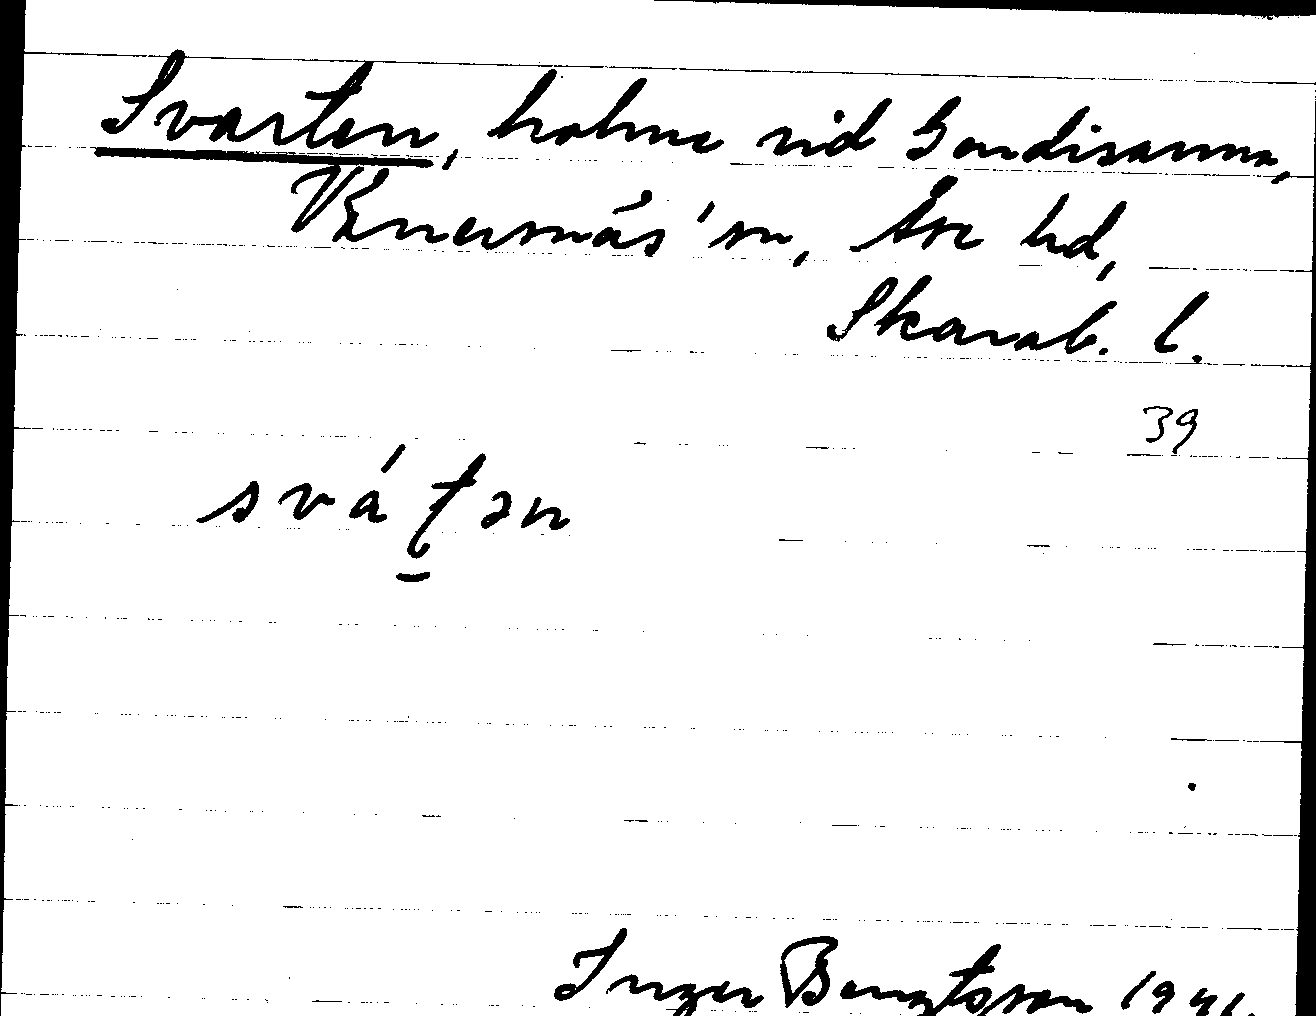 Svarten, holme vid
Vänersnäs sn, Åse hd,
Skarab. l.
39
sváʈən
Inger Bengtsson 1941.